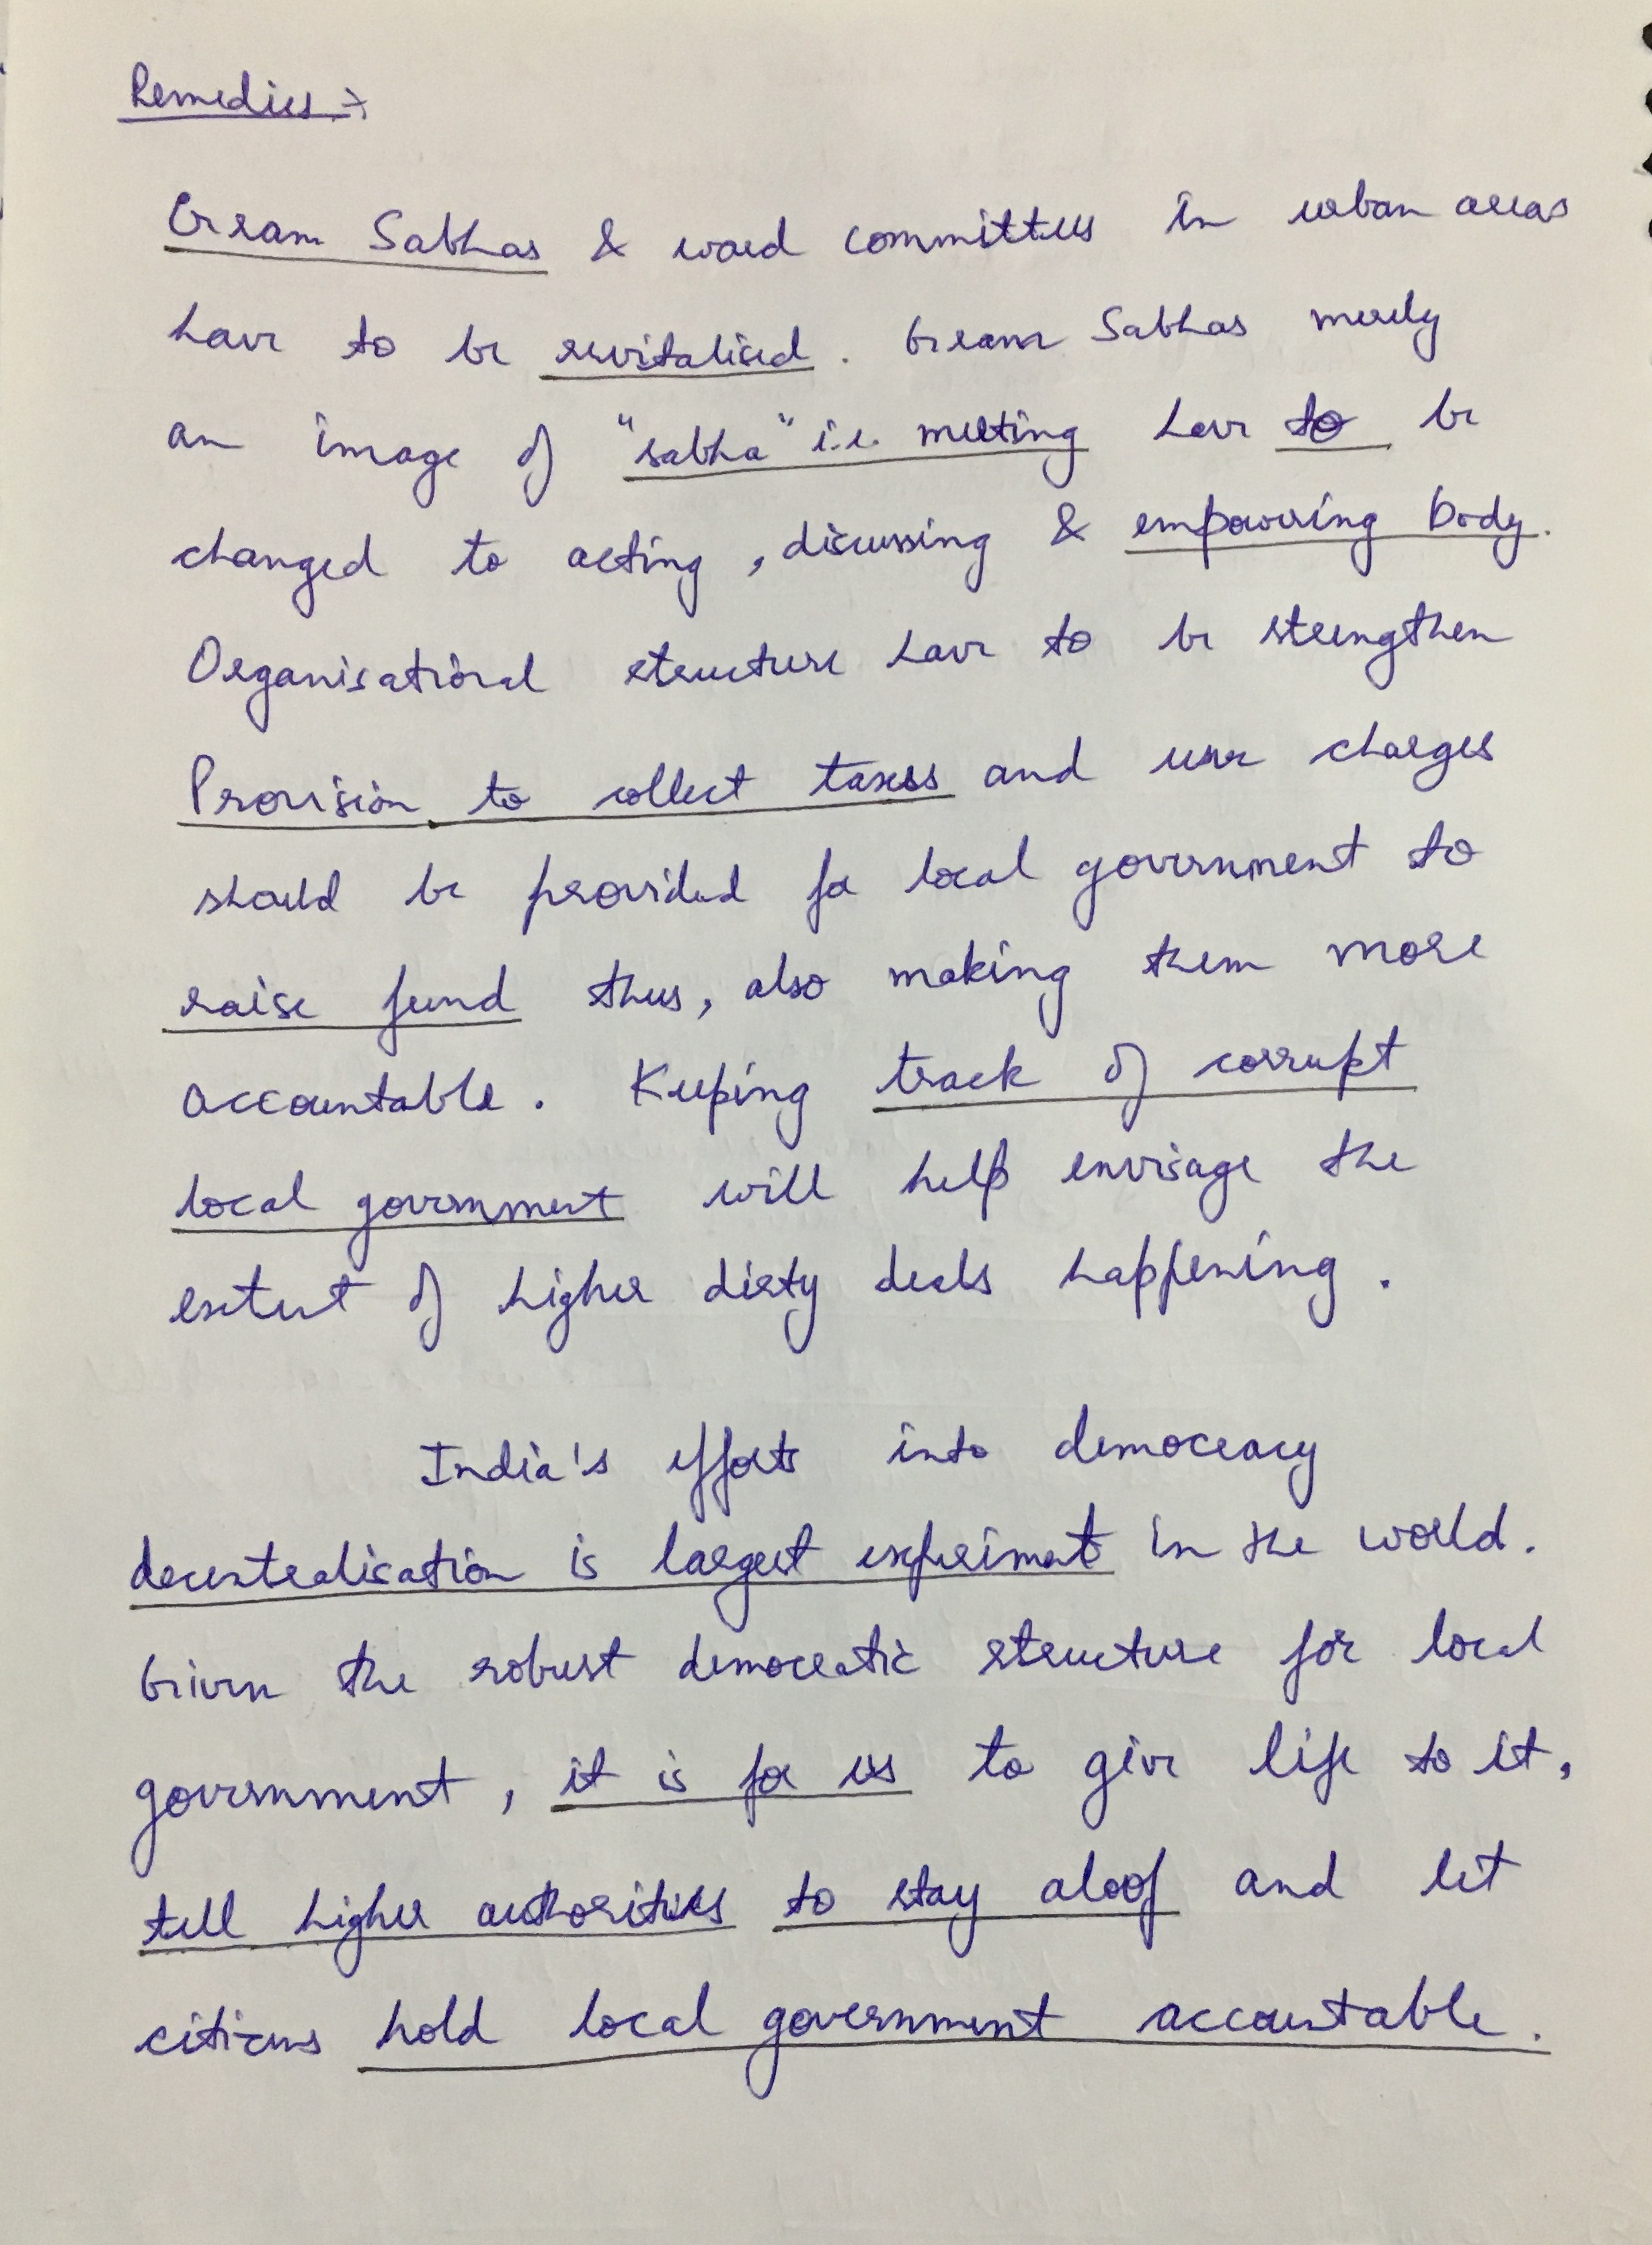 Remedies :→
Gram Sabhas & ward committees in urban areas
have to be revitalised. Gram Sabhas merely
an image of "sabha" i.e. meeting have to be
changed to acting, discussing & empowring body.
Organisational structure have to be strengthen
Provision to collect taxes and user charges
should be provided for local government to
raise fund thus, also making them more
accountable. Keeping track of corrupt
local government will help envisage the
extent of higher dirty deals happening.
India's efforts into democracy
decentralisation is largest experiment in the world.
Given the robust democratic structure for local
government, it is for us to give life to it,
tell higher authorities to stay aloof and let
citizens hold local government accountable.